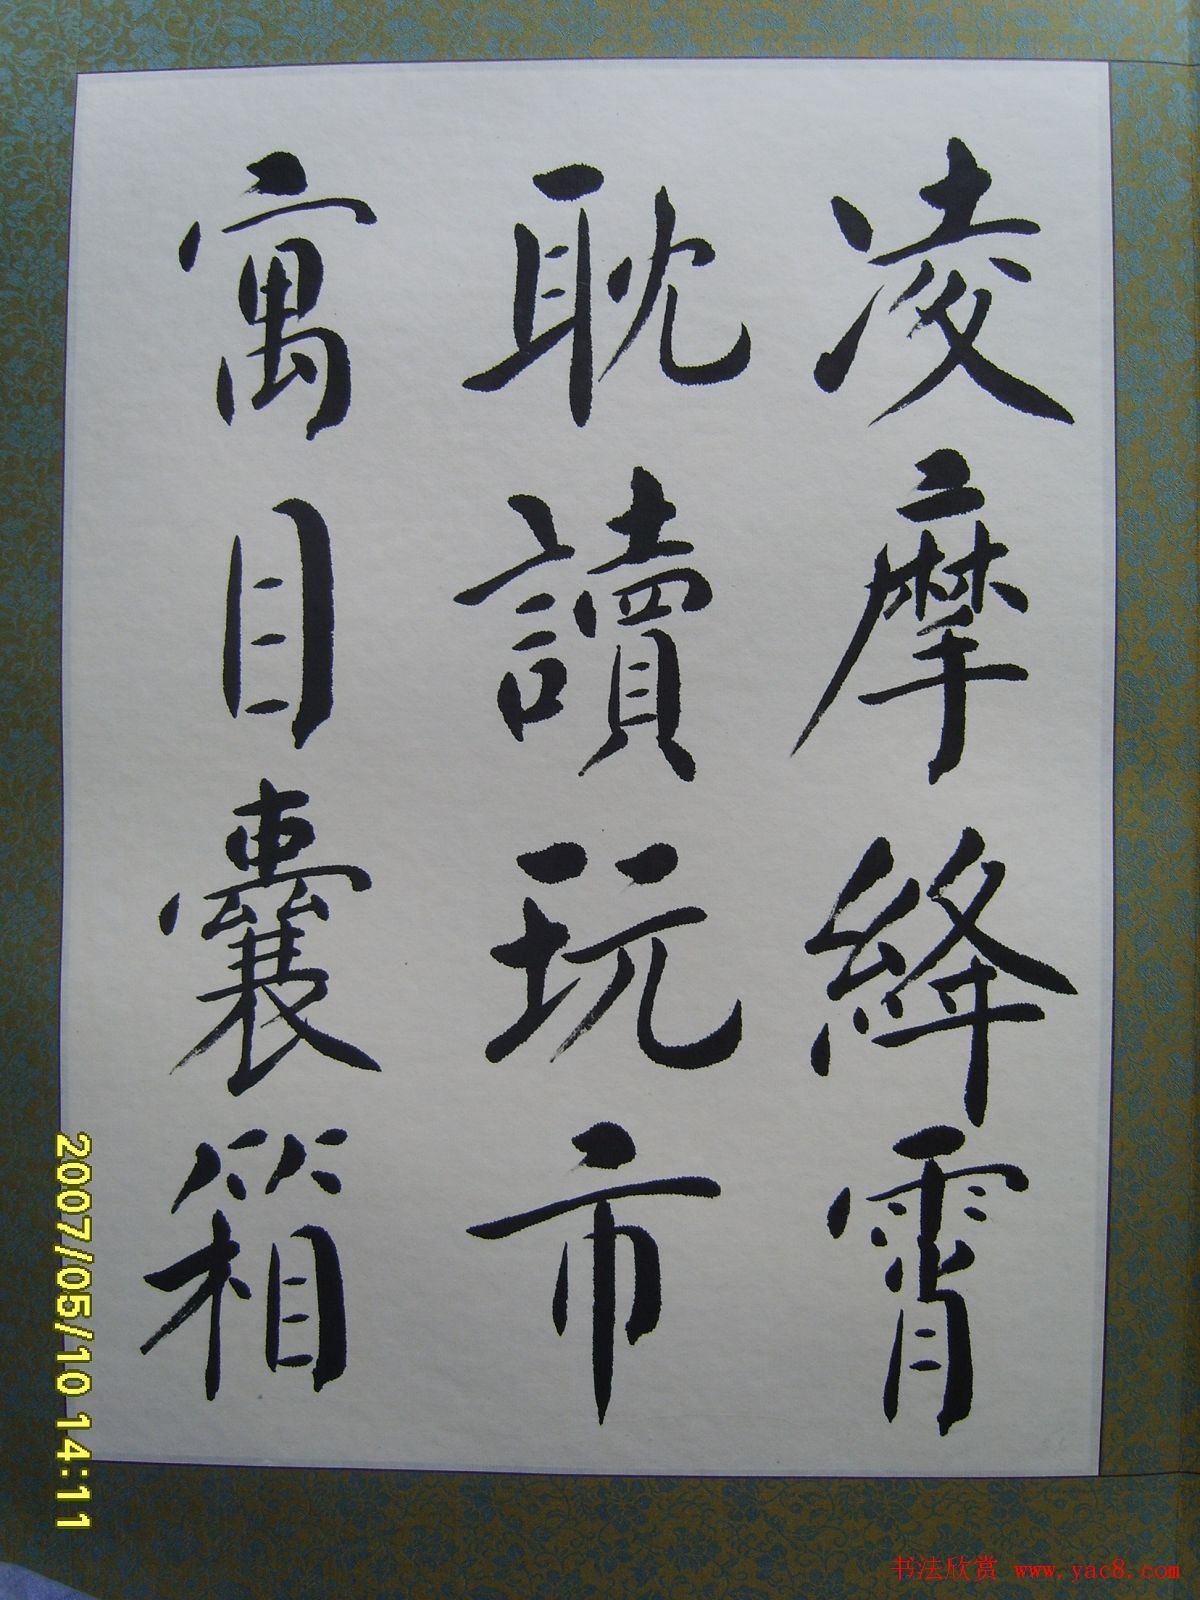 凌摩絳霄
耽讀玩市
寓目囊箱
2007/05/10 14:11
书法欣赏 www.yac8.com